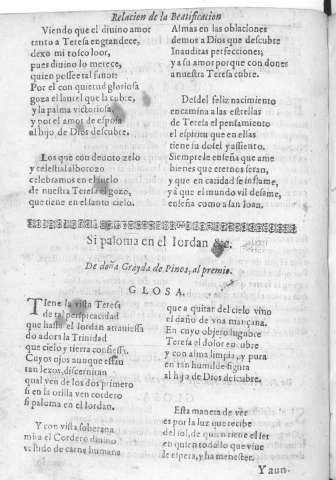 Relacion de la Beatificacion
Viendo que el diuino amor
tanto a Teresa engrandece,
dexo mi tosco loor,
pues diuino lo merece,
quien possee tal fauor:
Por el con quietud gloriosa
goza el laurel que la cubre,
y la palma victoriosa,
y por el amor de esposa
al hijo de Dios descubre.
Los que con deuoto zelo
y celestial alborozo
celebramos en el suelo
de nuestra Teresa el gozo,
que tiene en el santo cielo.
Almas en las oblaciones
demos a Dios que descubre
Inauditas perfecciones,
y a su amor porque con dones
a nuestra Teresa cubre.
Desdel feliz nacimiento
encamina a las estrellas
de Teresa el pensamiento
el espiritu que en ellas
tiene su dosel y assiento.
Siempre le enseña que ame
bienes que eternos seran,
y que en caridad se inflame,
y a que el mundo vil desame,
enseña como a san Ioan.
Si paloma en el Iordan &c.
De doña Grayda de Pinos, al premio.
GLOSA.
Tiene la vista Teresa
de tal perspicacidad
que hasta el Iordan atrauiessa
do adora la Trinidad
que cielo y tierra confiessa.
Cuyos ojos aunque estan
tan lexos, discernitan
qual ven de los dos primero
si en la orilla ven cordero
si paloma en el Iordan.
Y con vista soberana
mira el Cordero diuino
vestido de carne humana
que a quitar del cielo vino
el daño de voa mançana.
En cuyo objero lugubre
Teresa el dolor encubre
y con alma limpia, y pura
en tan humilde figura
al hijo de Dios descubre.
Esta manera de ver
es por la luz que recibe
del sol, de quien tiene el ser
en quien todo lo que viue
se espera, y ha menester.
Y aun-